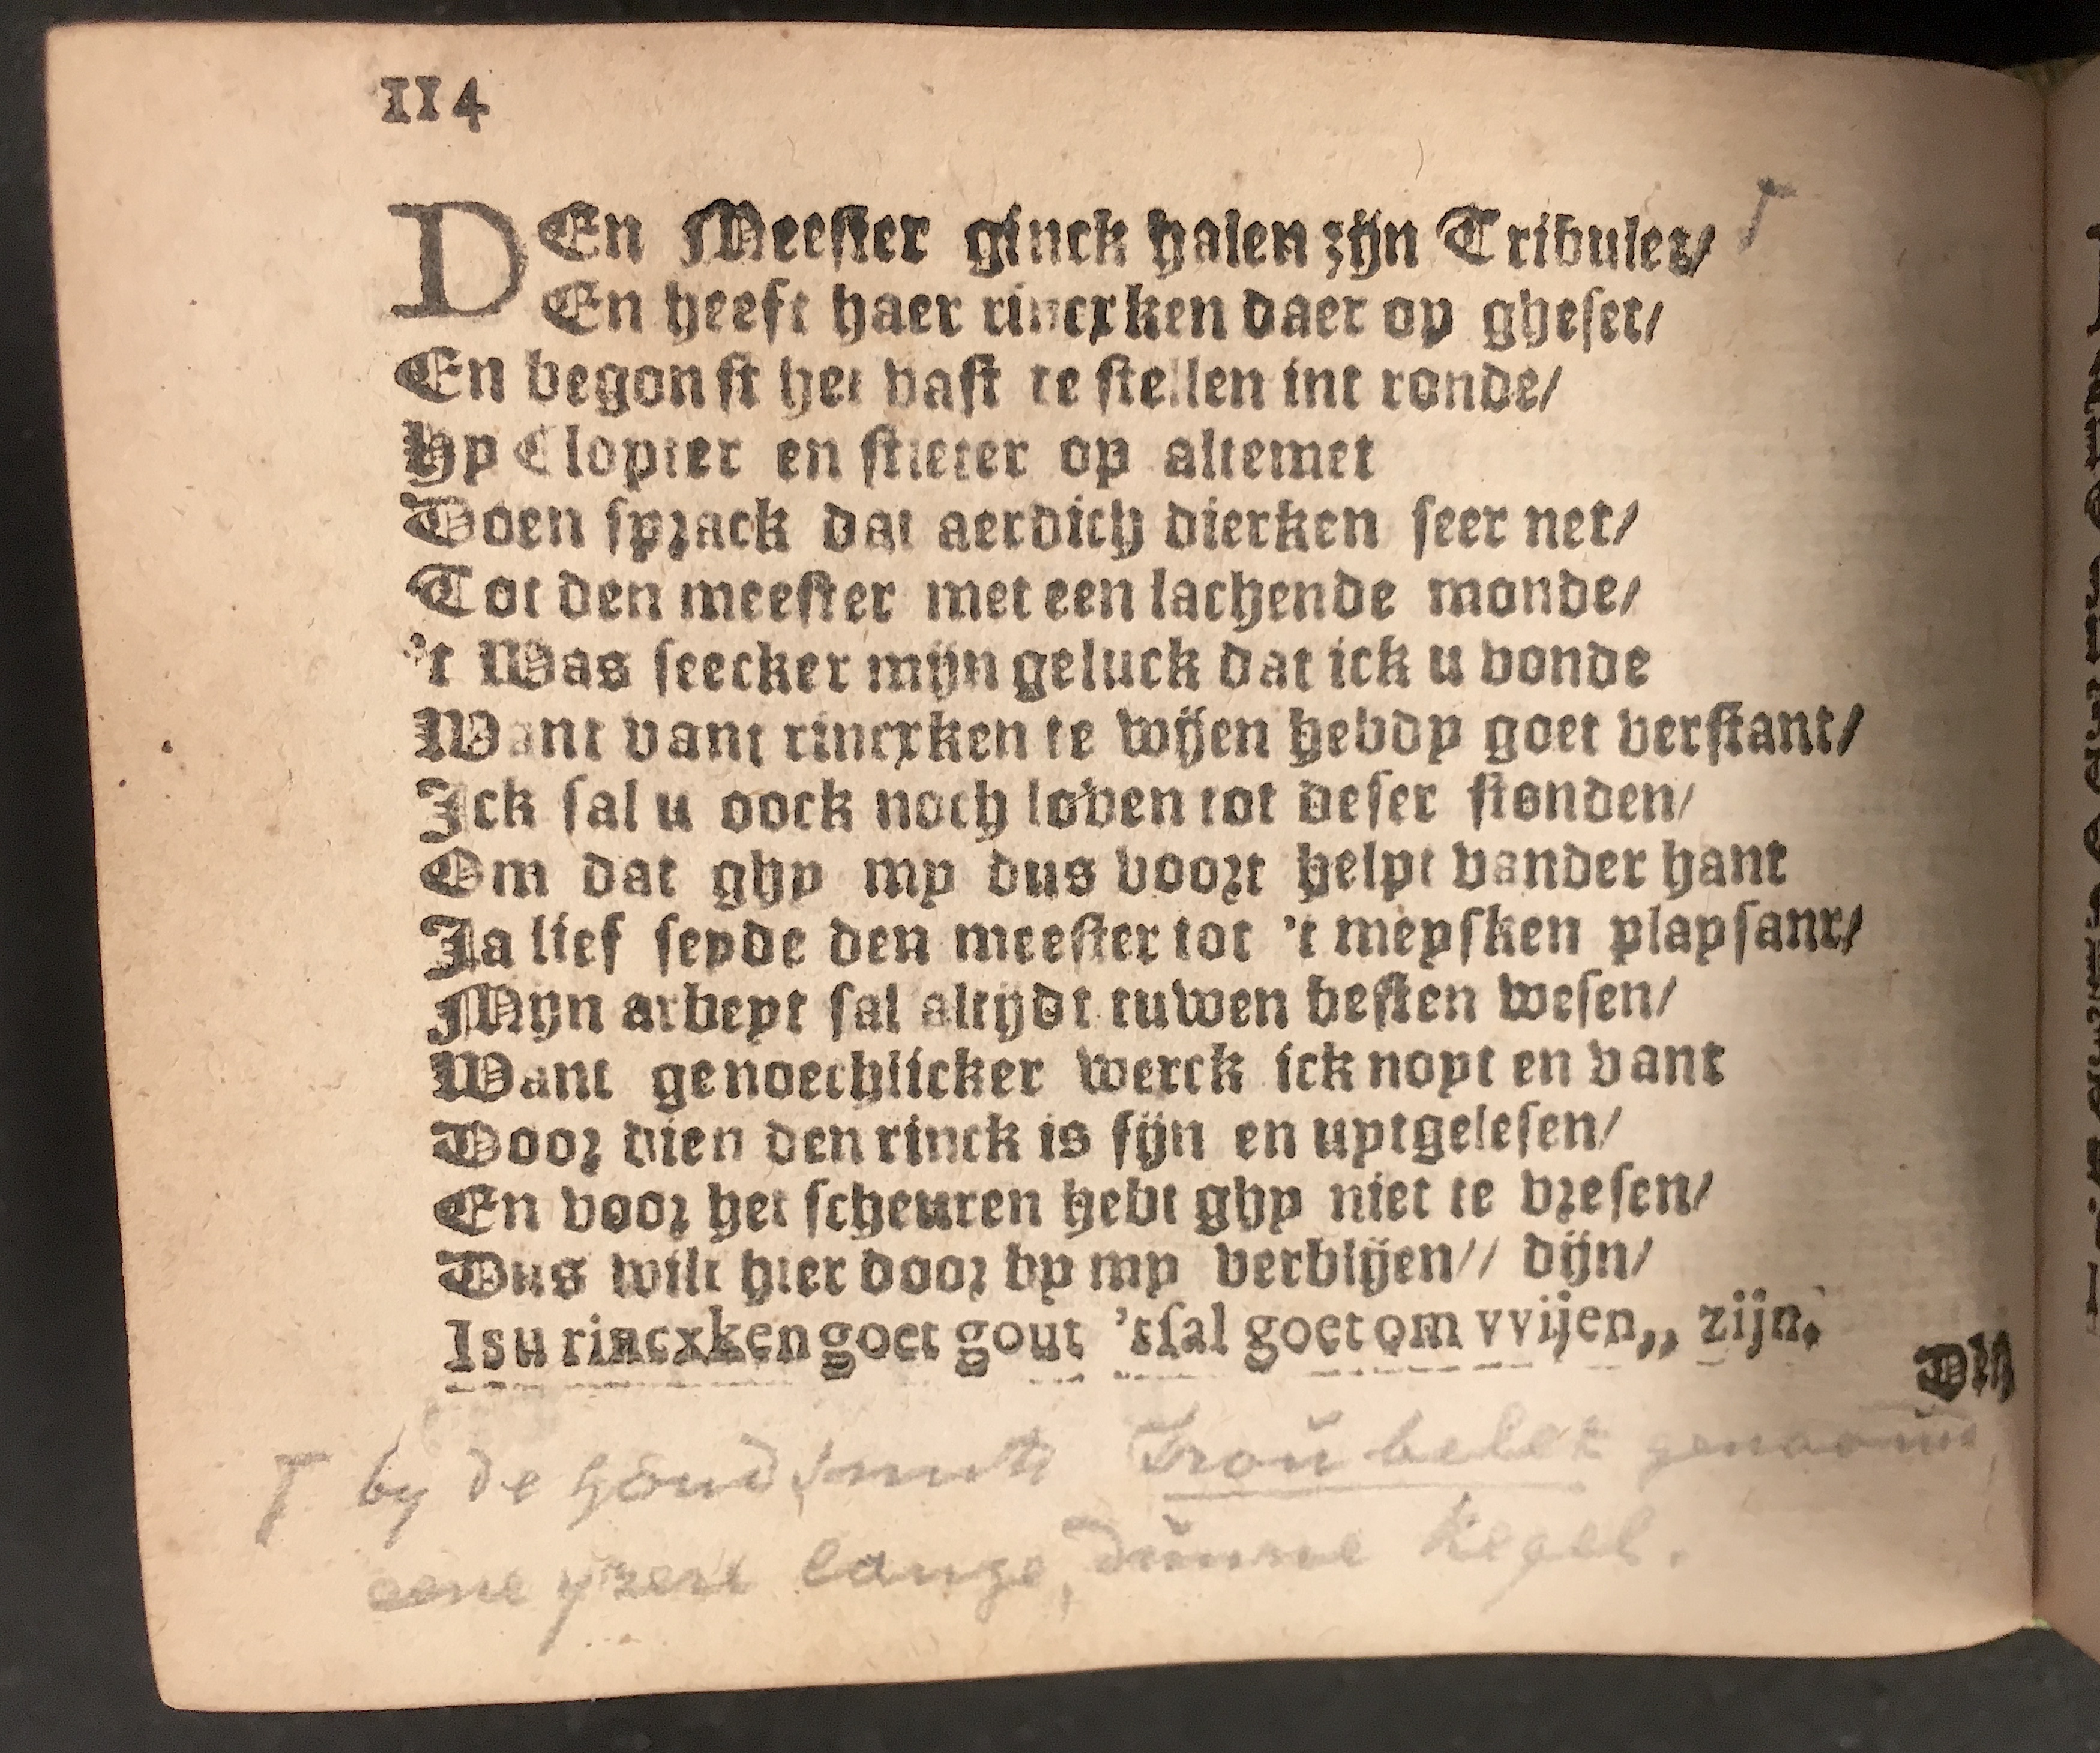 114
DEn Meester ginck halen zijn Tribulet/
En heeft haer rincxken daer op gheset/
En begonst het vast te stellen int ronde/
Hy Clopter en stieter op altemet
Doen sprack dat aerdich dierken seer net/
Tot den meester met een lachende monde/
't Was seecker mijn geluck dat ick u vonde
Want vant rincxken te wijen hebdy goet verstant/
Ick sal u oock noch loven tot deser stonden/
Om dat ghy my dus voort helpt vander hant
Ja lief seyde den meester tot 't meysken playsant/
Mijn arbeyt sal altijdt tuwen besten wesen/
Want genoechlicker werck ick noyt en vant
Door dien den rinck is fijn en uytgelesen/
En voor het scheuren hebt ghy niet te vresen/
Dus wilt hier door by my verblijen// dijn/
Is u rincxken goet gout 'tsal goet om vvijen,, zijn.
Den
by de goudsmits Troubelet genaamd,
eene yzere lange, dunne kegel.